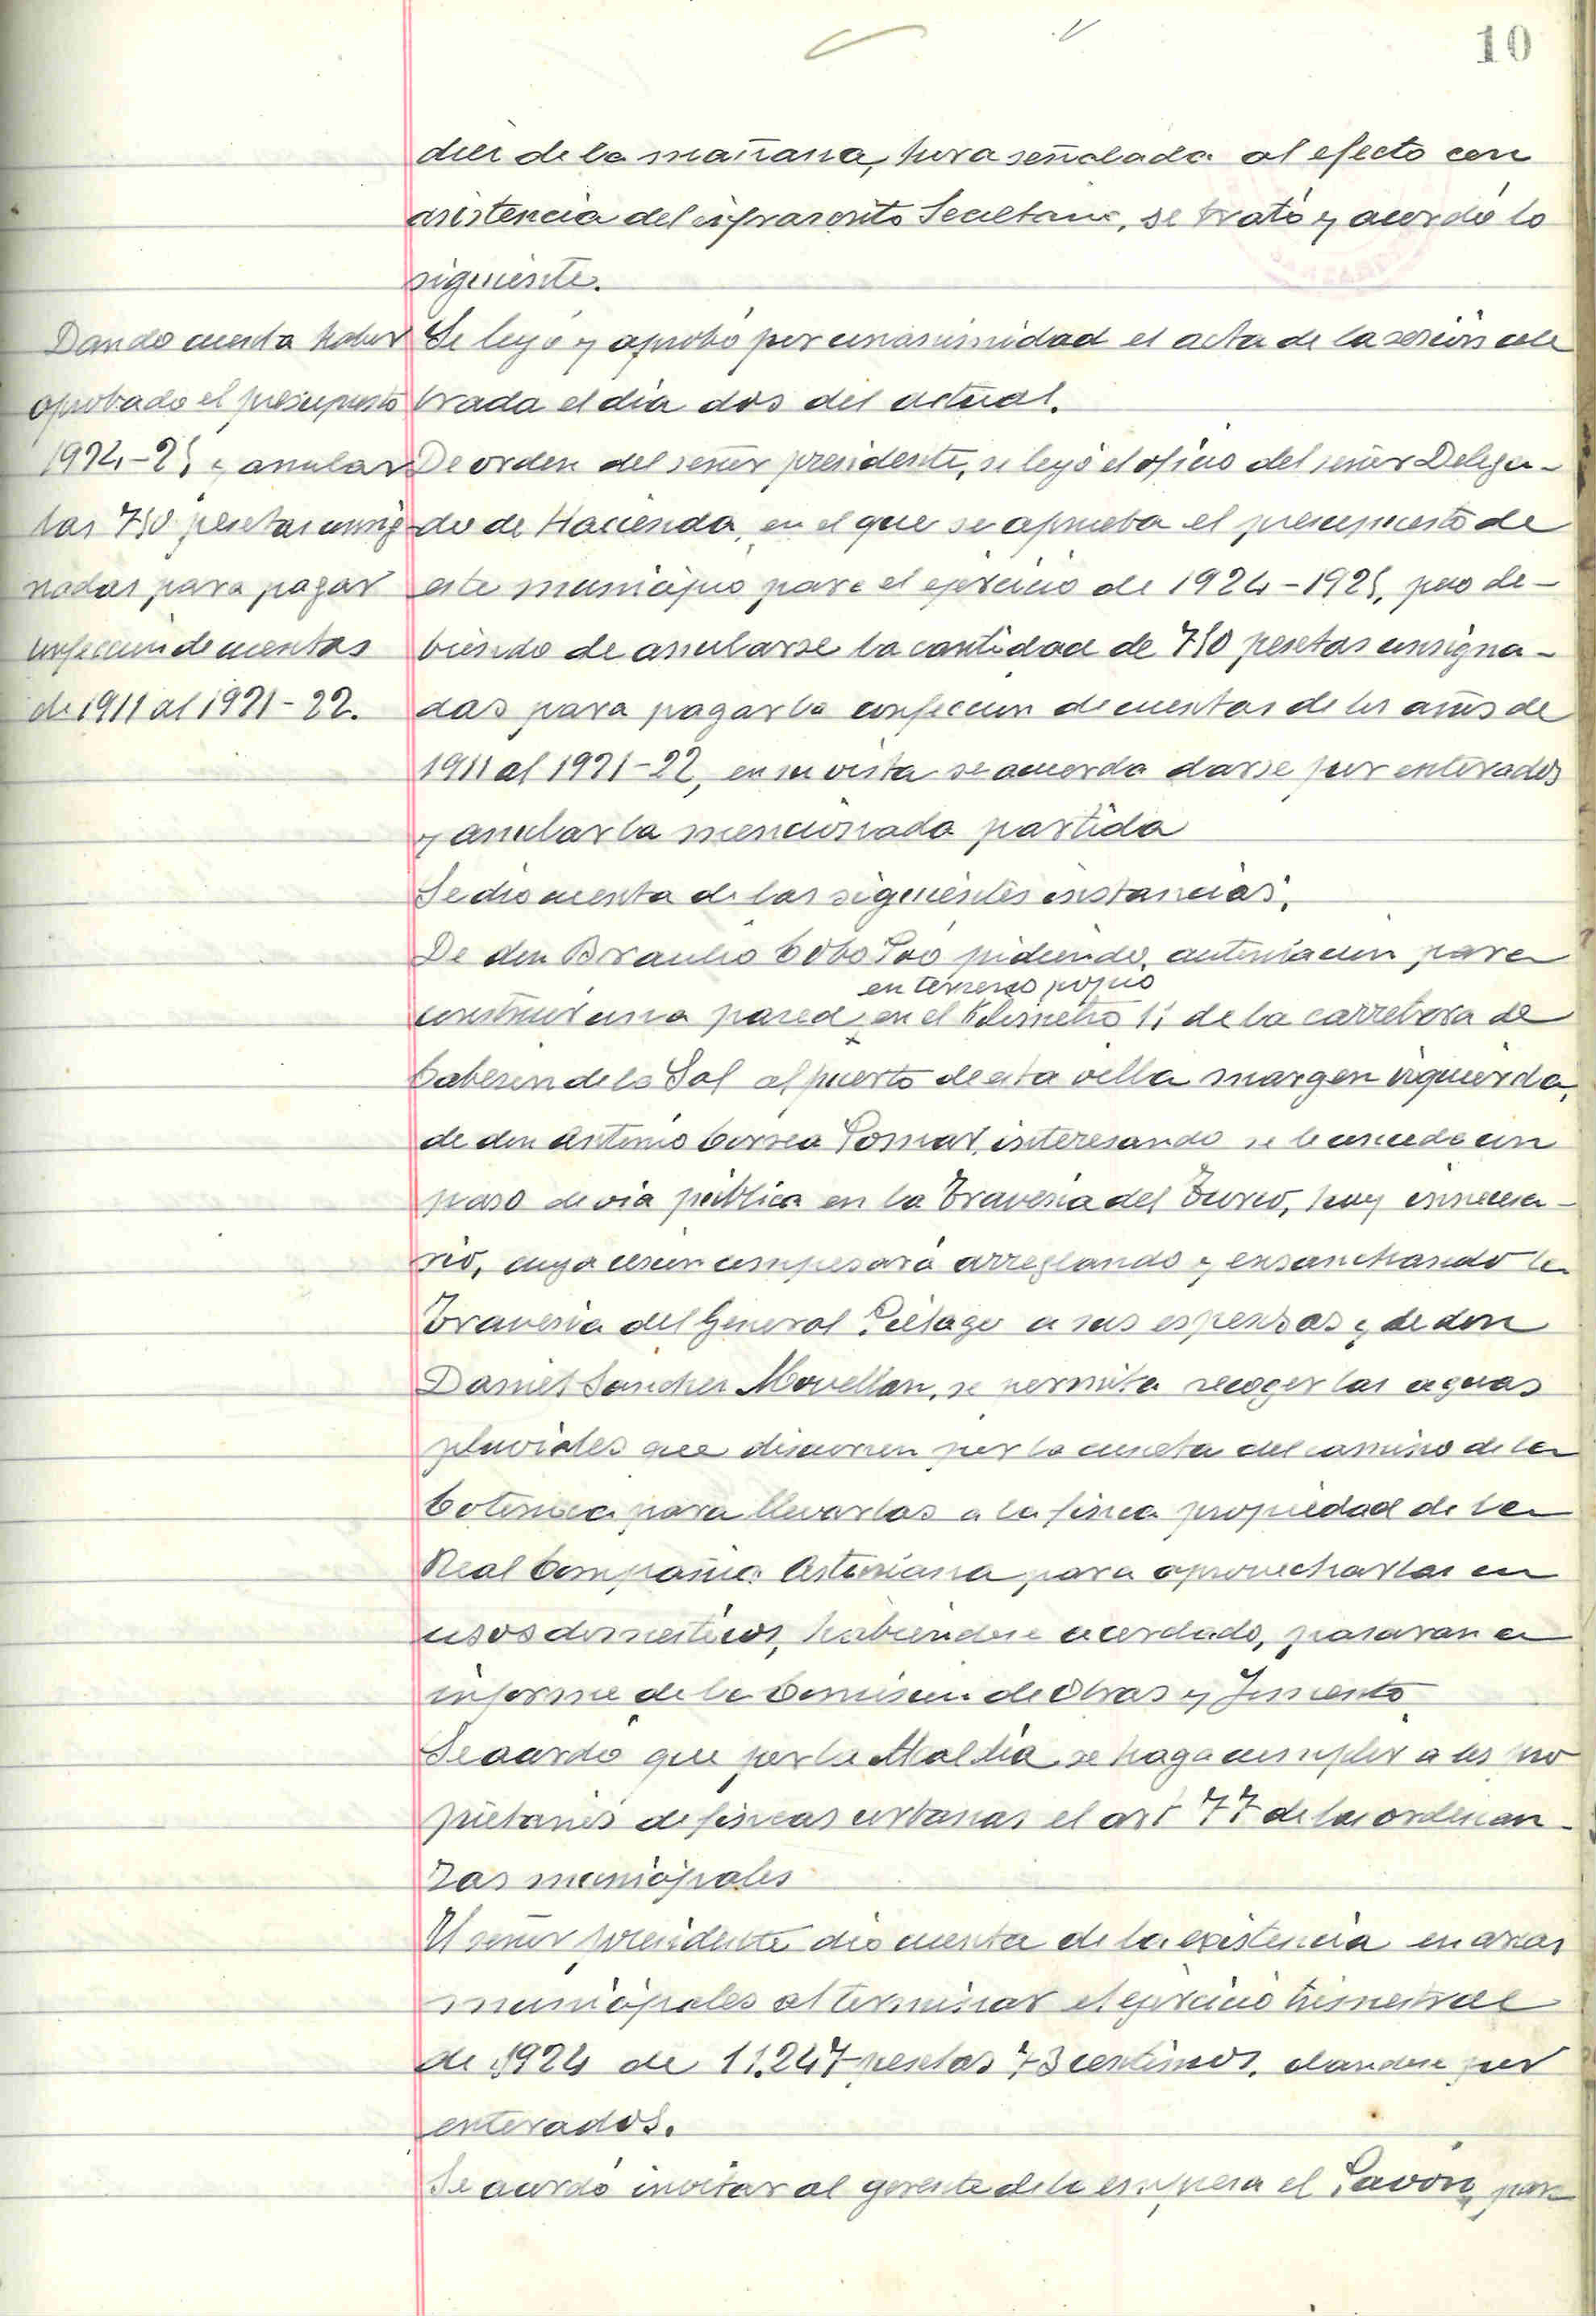 10
diez de la mañana, hora señalada al efecto con
asistencia del infrascrito Secretario, se trató y acordó lo
siguiente.
Dando cuenta haber
aprobado el presupuesto
1924-25 y anular
las 750 pesetas consig
nadas para pagar
confeccion de cuentas
de 1911 al 1921-22.
Se leyó y aprobó por unanimidad el acta de la sesión cele
brada el día dos del actual.
De orden del señor presidente, se leyó el oficio del señor Delega-
do de Hacienda, en el que se aprueba el presupuesto de
este municipio para el ejercicio de 1924-1925, pero de-
biendo de anularse la cantidad de 750 pesetas consigna-
das para pagar la confeccion de cuentas de los años de
1911 al 1921-22, en su vista se acuerda darse por enterados
y anular la mencionada partida
Se dio cuenta de las siguientes instancias:
De don Braulio Cobo pidiendo autorizacion para
en terreno propio
construir una pared en el Kilometro 1: de la carretera de
Cabezon de la Sal al puerto de esta villa margen izquierda,
de don Antonio Correa Pomar, interesando se le conceda un
paso de via pública en la Travesia del Turco, hoy innecesa-
rio, cuya cesion compesará arreglando y ensanchando la
Travesia del General Piélago a sus espensas y de don
Daniel Sanchez Movellan, se permita recoger las aguas
pluviales que discurren por la cuneta del camino de la
Coteruca para llevarlas a la finca propiedad de la
Real Compañia Asturiana para aprovecharlas en
usos domesticos, habiendose acordado, pasaran a
informe de la Comision de Obras y Fomento
Se acordó que por la Alcaldia se haga cumplir a los pro
pietarios de fincas urbanas el art 77 de las ordenan-
zas municipales
El señor presidente dio cuenta de la existencia en arcas
municipales al terminar el ejercicio trimestral
de 1924 de 11.247 pesetas 73 centimos, dandose por
enterados.
Se acordó invitar al gerente de la empresa el Pavon, para